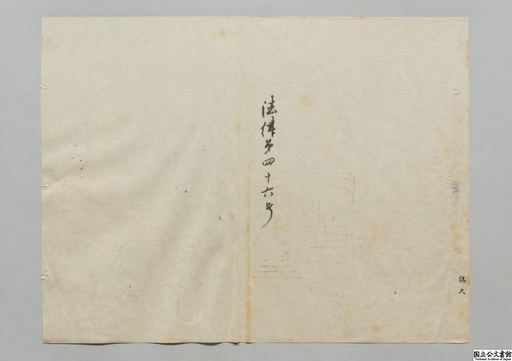 法律第四十六号
国立公文書館
National Archives of Japan